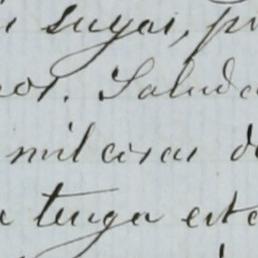 suyas, pr
os. Saluda
mil cosas d
a tenga est